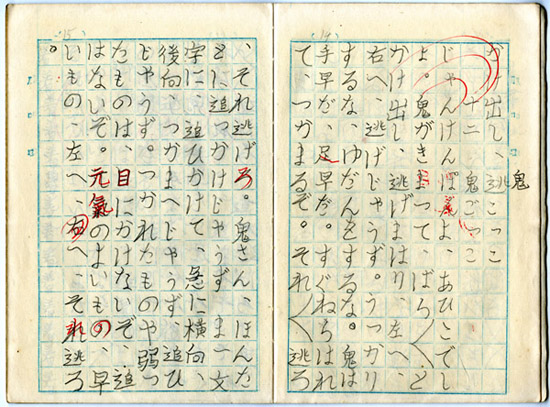 14
かけ出し、逃こっこ
鬼
十二 鬼ごっこ
じゃんけんぽよ、あひこでし
よ。鬼がきまって、ばら〳〵と
かけ出し、逃げまはり、左へ、
右へ、逃げじゃうず。うっかり
するな、ゆだんをするな。鬼は
手早だ、足早だ。すぐねらはれ
て、つかまるぞ。それ〳〵逃ろ
15
、それ逃げろ。鬼さん、ほんた
とに追つかけじゃうず、ま一文
字に、追ひかけて、急に横向、
後向、つかまへじゃうず、追ひ
じやうず。つかれたものや弱つ
たものは、目にかけないぞ、追
はないぞ。元氣のよいもの、早
いもの、左へ、右へ、それ逃ろ
。